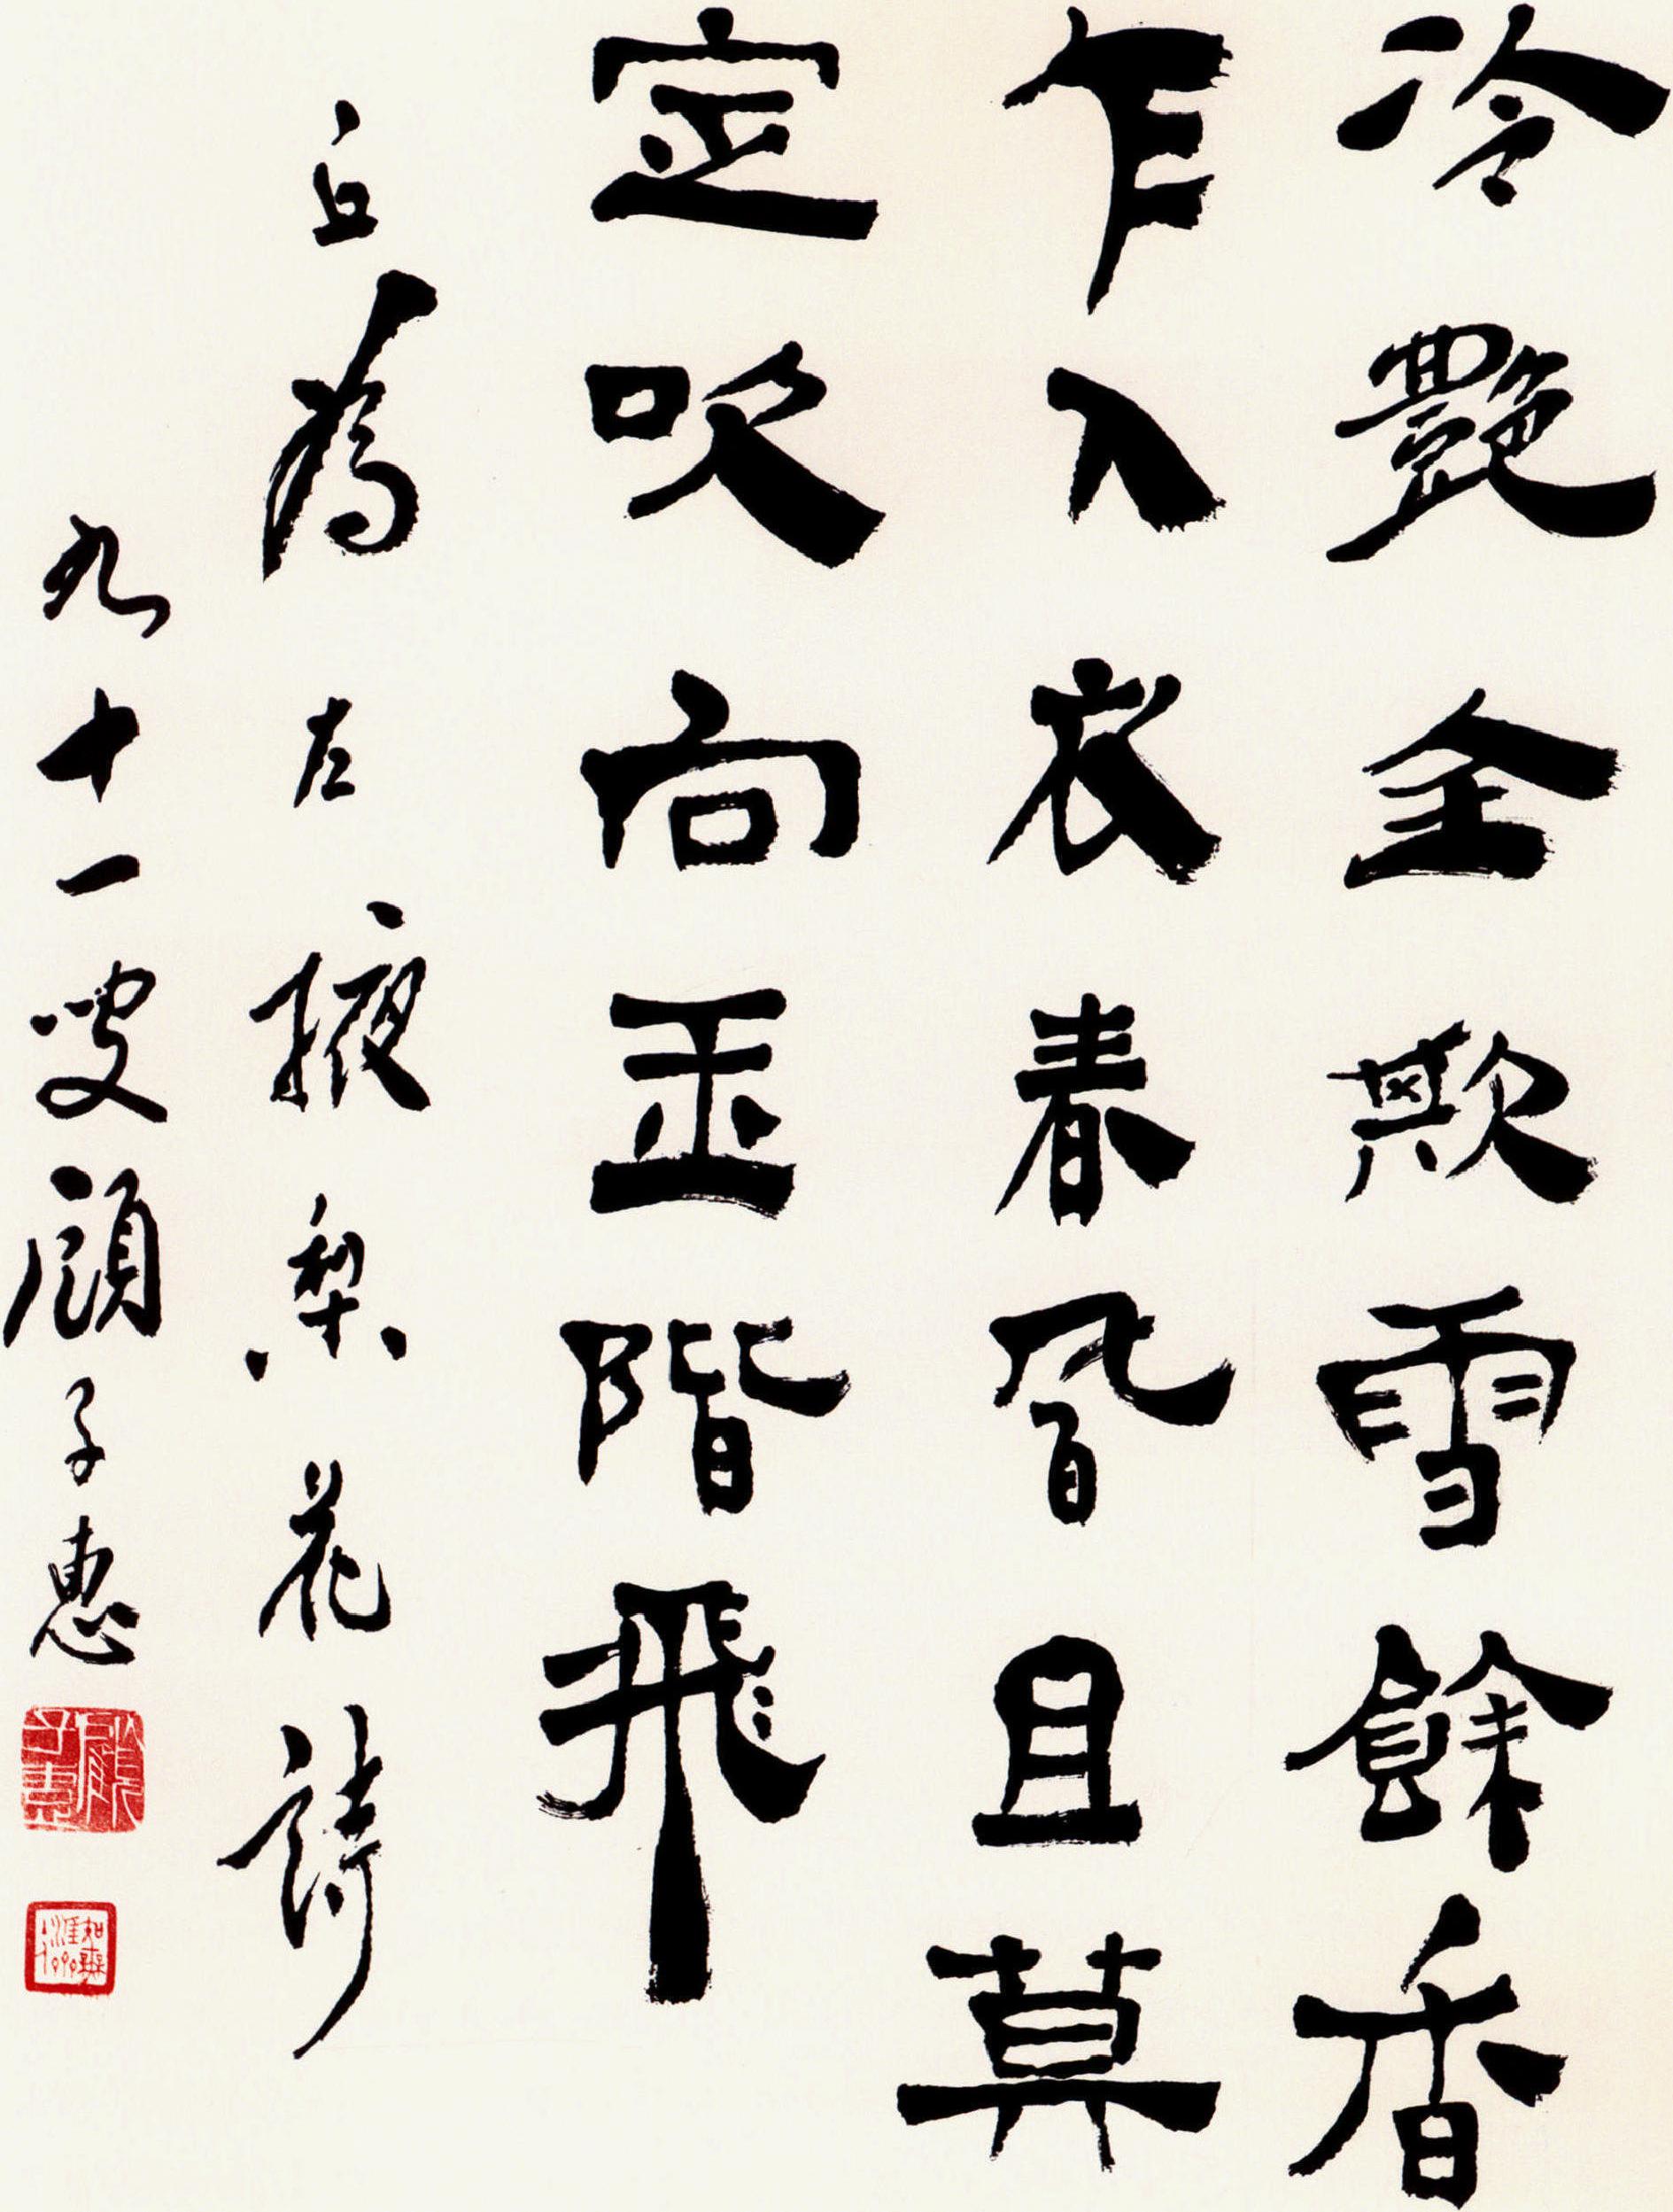 冷艷全欺雪餘香
乍入衣春風且莫
定吹向玉階飛
丘為左掖梨花詩
九十一叟顧子惠
顧子惠